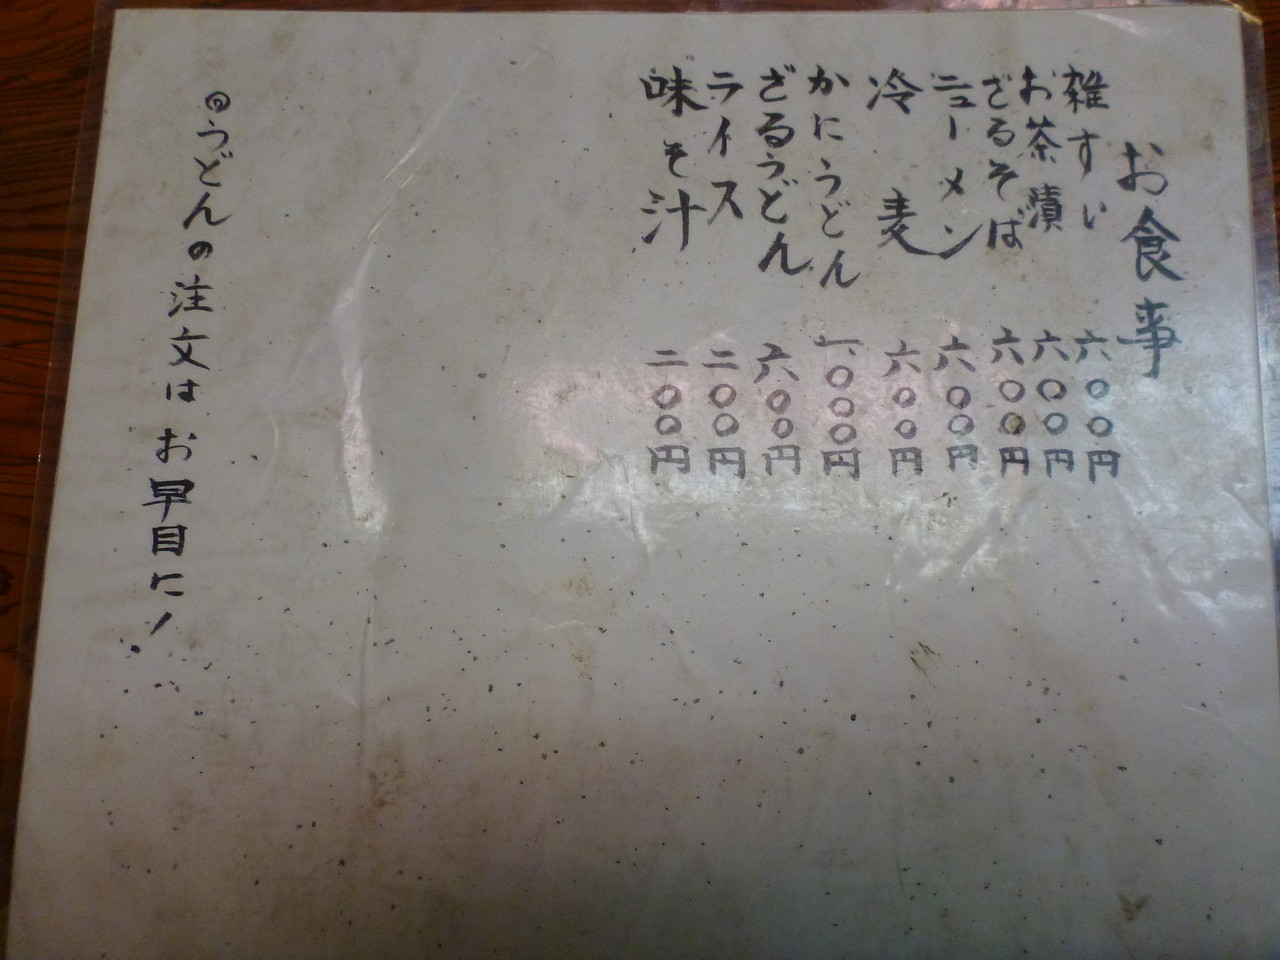 お食事
雑すい 六〇〇円
お茶漬 六〇〇円
ざるそば 六〇〇円
ニューメン 六〇〇円
冷麦 六〇〇円
かにうどん 一、〇〇〇円
ざるうどん 六〇〇円
ライス 二〇〇円
味そ汁 二〇〇円
◎うどんの注文はお早目に!